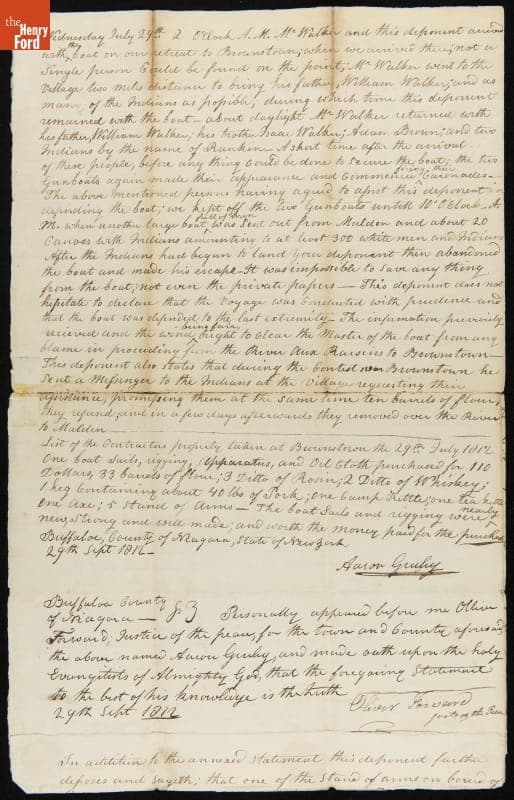 the
Henry
Ford
Wednesday July 29th 2 O'Clock A.M. Mr Walker and this deponent arived
with the boat on our retreat to Brownstown; when we arrived there; not a
Single person Could be found on the point; Mr Walker went to the
Village two mils distance to bring his father, William Walker; and as
many of the Indians as posible; during which time this deponent
remained with the boat - about daylight Mr Walker returned with
his father, William Walker; his brother Isaac Walker; Adam Brown; and two
Indians by the name of Rankin - A short time after the arrival
of these people, before any thing Could be done to secure the boat; the two
Gunboats again made their appearance and Commenced firing their Caronades -
The above mentioned persons having agreed to assist this deponent in
defending the boat; we kept off the two Gunboats untill 10 O'Clock A.
M. when another large boat full of men was Sent out from Malden and about 20
Canoes with Indians amounting to at least 300 white men and Indians
After the Indians had began to land your deponent then abandoned
the boat and made his escape - It was impossible to save any thing
from the boat; not even the private papers - This deponent does not
hesitate to declare that the Voyage was Conducted with prudence and
that the boat was defended to the last extremity - The information previously
recieved and the wind being fair ought to Clear the Master of the boat from any
blame in proceeding from the River Aux Raisins to Brownstown -
This deponent also states that during the Contest near Brownstown he
Sent a Messenger to the Indians at the Village requesting their
assistance, promissing them at the same time ten barels of flour,
they refused; and in a few days afterwards they removed over the River
to Malden
List of the Contractors property taken at Brownstown the 29th July 1812
One boat Sails, rigging, Apparatus, and Oil Cloth purchased for 110
Dollars, 33 barels of flour; 3 Ditto of Rosin; 2 Ditto of Whiskey;
1 keg Containing about 40 lbs of Pork; One Camp Kettle; one tea kettle
one axe; 5 Stand of Arms - The boat Sails and rigging were nearly
new, Strong and well made; and worth the money paid for the purchase
Buffaloe, County of Niagara, State of New York
29th Sept 1812 -
Aaron Greeley
Buffaloe County
of Niagara - } Personally appeared before me Oliver
Forward, Justice of the peace, for the town and County aforesaid
the above named Aaron Greeley, and made oath upon the holy
Evangelists of Almighty God, that the foregoing Statement
to the best of his knowledge is the truth
29th Sept 1812
Oliver Forward
Justice of the Peace
In addition to the annexed Statement this deponent further
deposes and Sayeth; that one of the Stand of arms on board of